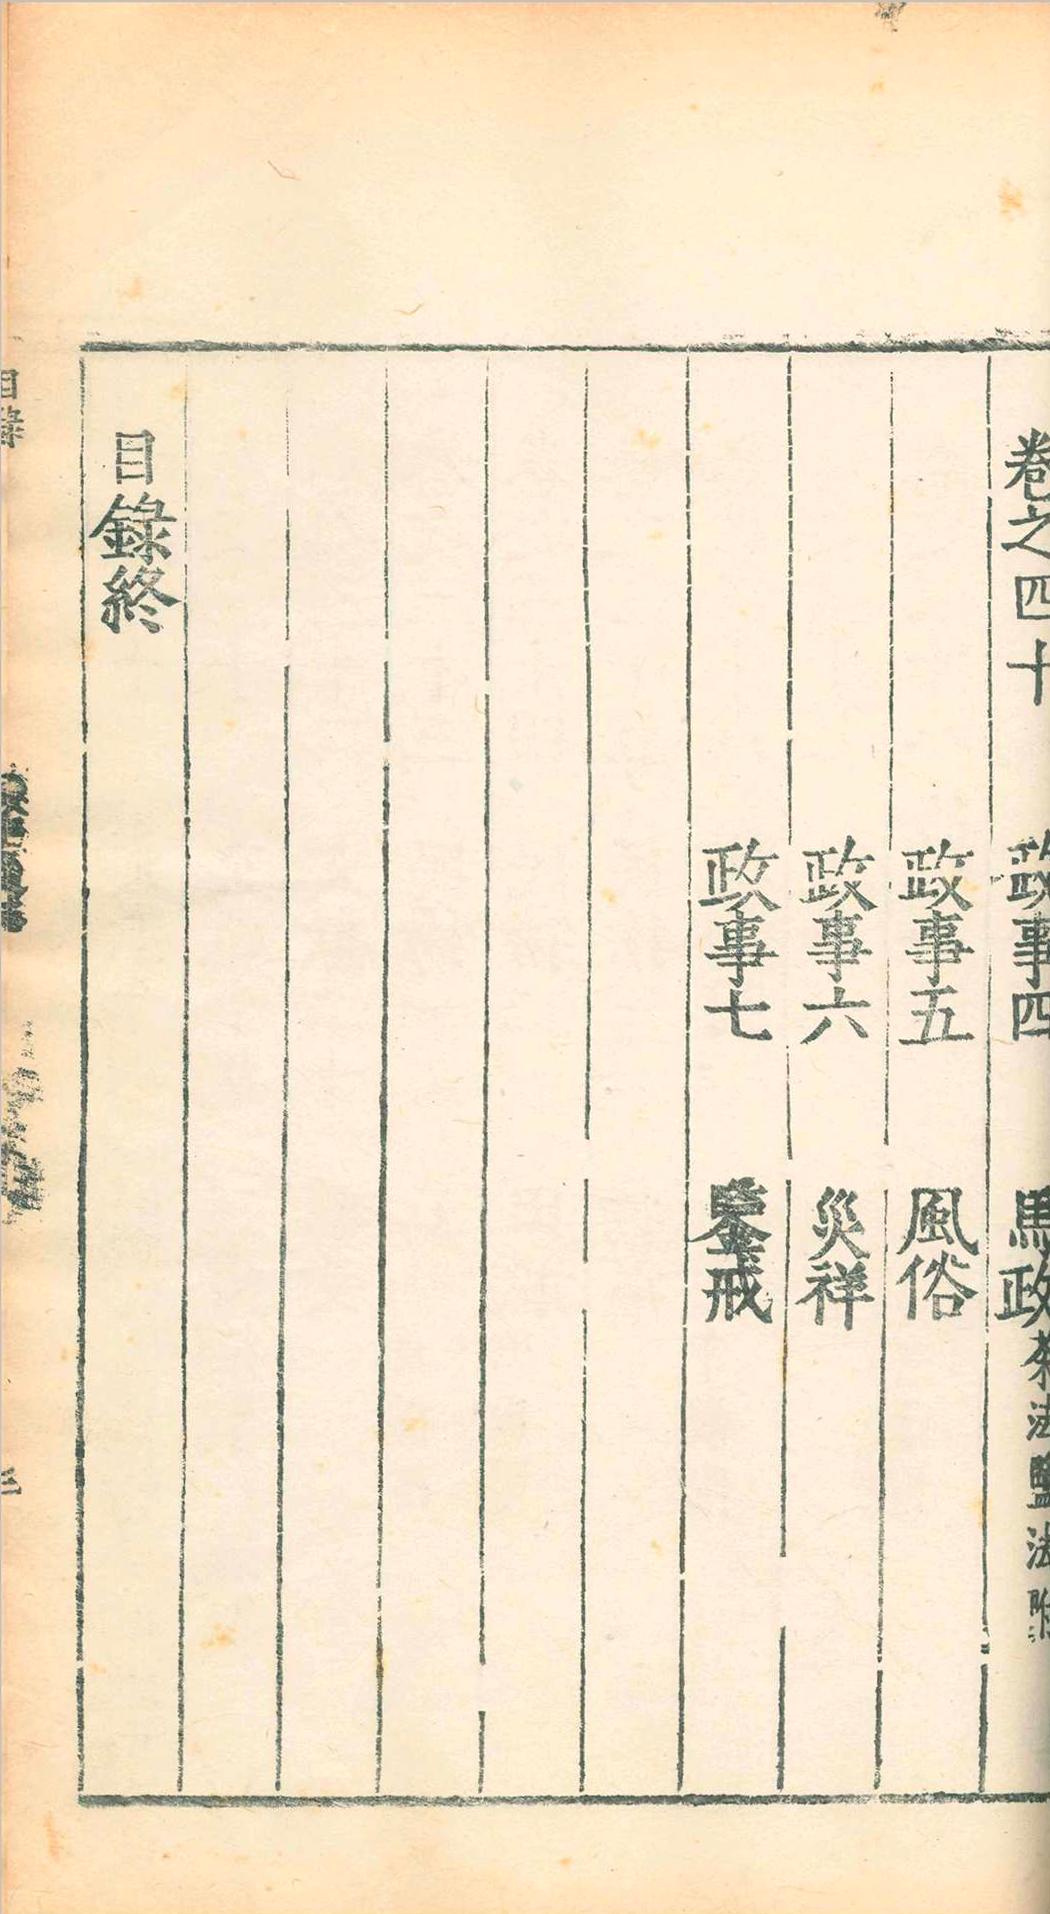 卷之四十
政事四 馬政茶法鹽法附
政事五 風俗
政事六 災祥
政事七 鑒戒
目錄終
目錄